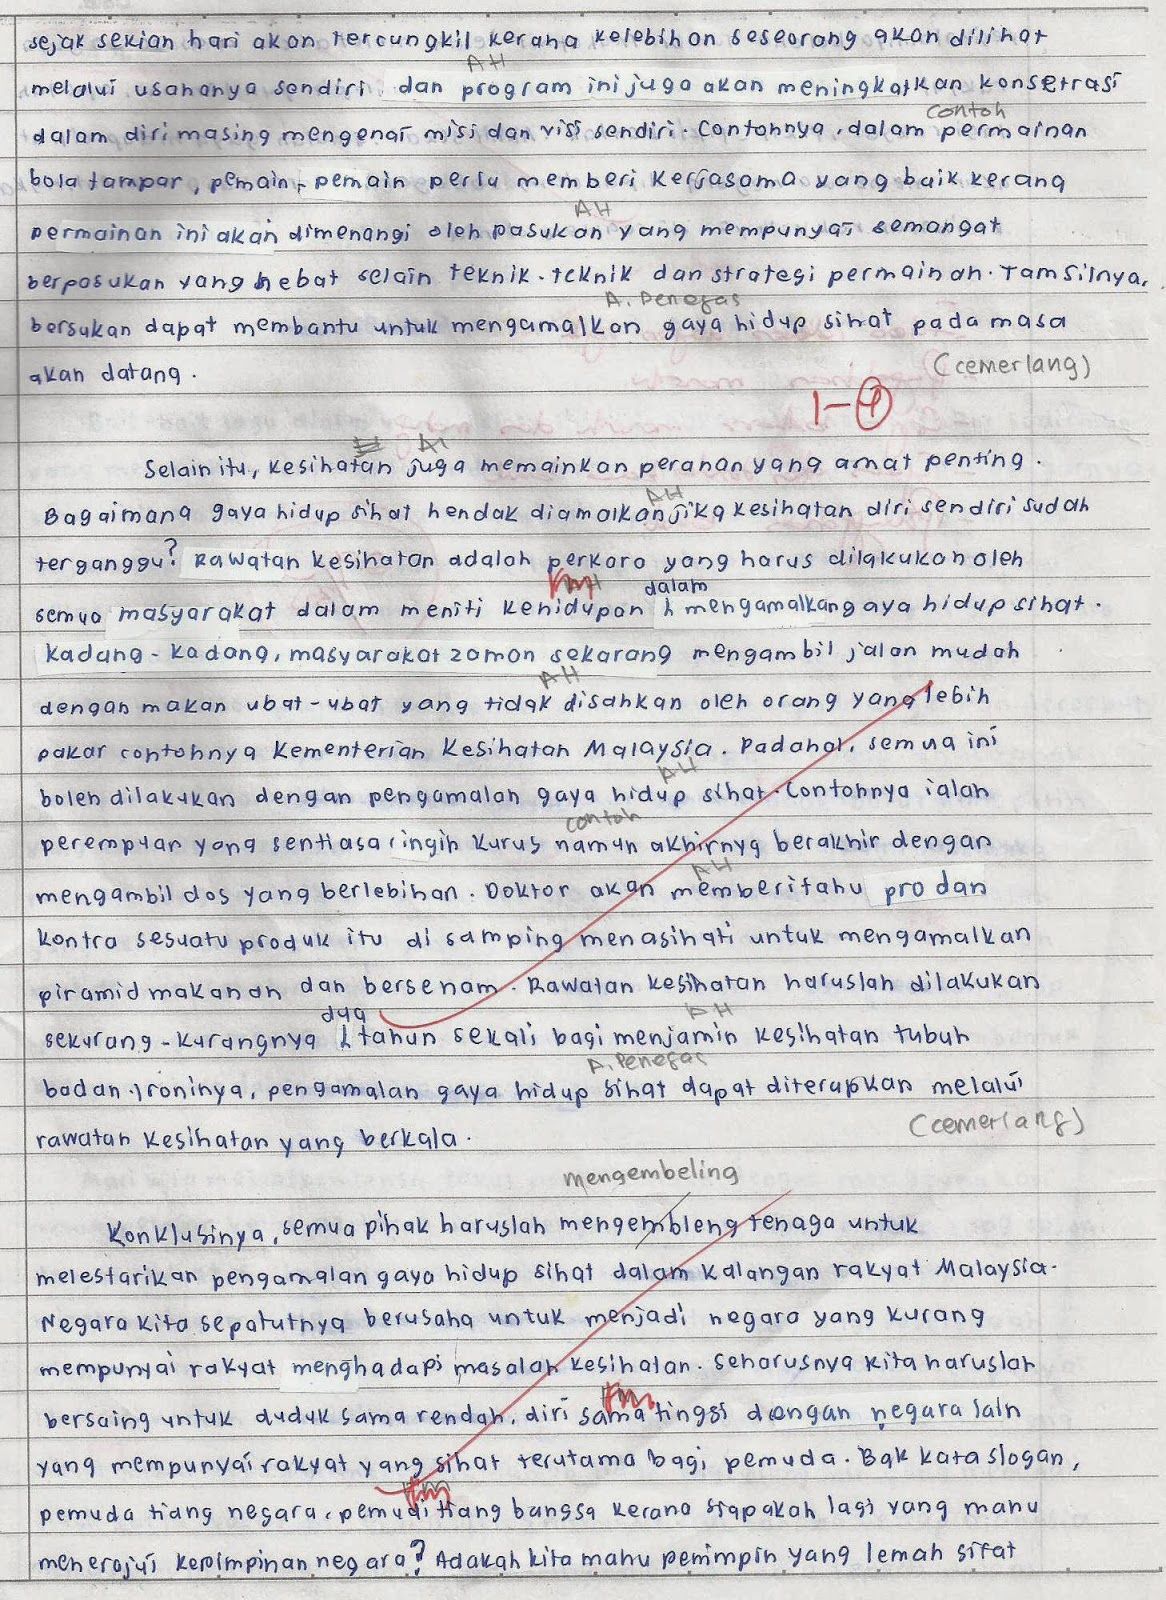 sejak sekian hari akan tercungkil kerana kelebihan seseorang akan dilihat
AH
melalui usahanya sendiri dan program ini juga akan meningkatkan konsetrasi
contoh
dalam diri masing mengenai misi dan visi sendiri. Contohnya, dalam permainan
bola tampar, pemain-pemain perlu memberi kerjasama yang baik kerana
AH
permainan ini akan dimenangi oleh pasukan yang mempunyai semangat
berpasukan yang hebat selain teknik-teknik dan strategi permainan. Tamsilnya,
A. Penegas
bersukan dapat membantu untuk mengamalkan gaya hidup sihat pada masa
akan datang.
(cemerlang)
1-4
AH
Selain itu, kesihatan juga memainkan peranan yang amat penting.
AH
Bagaimana gaya hidup sihat hendak diamalkan jika kesihatan diri sendiri sudah
terganggu? Rawatan kesihatan adalah perkara yang harus dilakukan oleh
fm AH dalam
semua masyarakat dalam meniti kehidupan mengamalkan gaya hidup sihat.
Kadang-kadang, masyarakat zaman sekarang mengambil jalan mudah
AH
dengan makan ubat-ubat yang tidak disahkan oleh orang yang lebih
pakar contohnya Kementerian Kesihatan Malaysia. Padahal, semua ini
AH
boleh dilakukan dengan pengamalan gaya hidup sihat. Contohnya ialah
contoh
perempuan yang sentiasa ingin kurus namun akhirnya berakhir dengan
AH
mengambil dos yang berlebihan. Doktor akan memberitahu pro dan
kontra sesuatu produk itu di samping menasihati untuk mengamalkan
piramid makanan dan bersenam. Rawatan kesihatan haruslah dilakukan
dua AH
sekurang-kurangnya tahun sekali bagi menjamin kesihatan tubuh
A. Penegas
badan. Ironinya, pengamalan gaya hidup sihat dapat diterapkan melalui
rawatan kesihatan yang berkala.
(cemerlang)
mengembeling
Konklusinya, semua pihak haruslah mengembleng tenaga untuk
melestarikan pengamalan gaya hidup sihat dalam kalangan rakyat Malaysia.
Negara kita sepatutnya berusaha untuk menjadi negara yang kurang
mempunyai rakyat menghadapi masalah kesihatan. Seharusnya kita haruslah
fm
bersaing untuk duduk sama rendah, diri sama tinggi dengan negara lain
yang mempunyai rakyat yang sihat terutama bagi pemuda. Bak kata slogan,
fm
pemuda tiang negara, pemudi tiang bangsa kerana siapakah lagi yang mahu
menerajui kepimpinan negara? Adakah kita mahu pemimpin yang lemah sifat